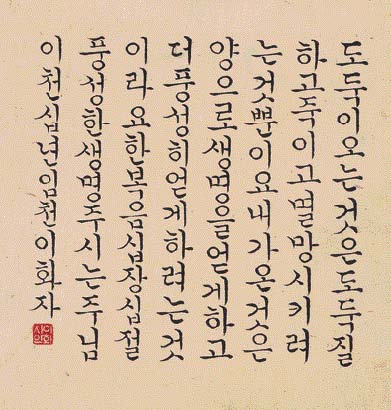 도둑이오는것은도둑질
하고죽이고멸망시키려
는것뿐이요내가온것은
양으로생명을얻게하고
더풍성히얻게하려는것
이라요한복음십장십절
풍성한생명주시는주님
이천십년임천이화자